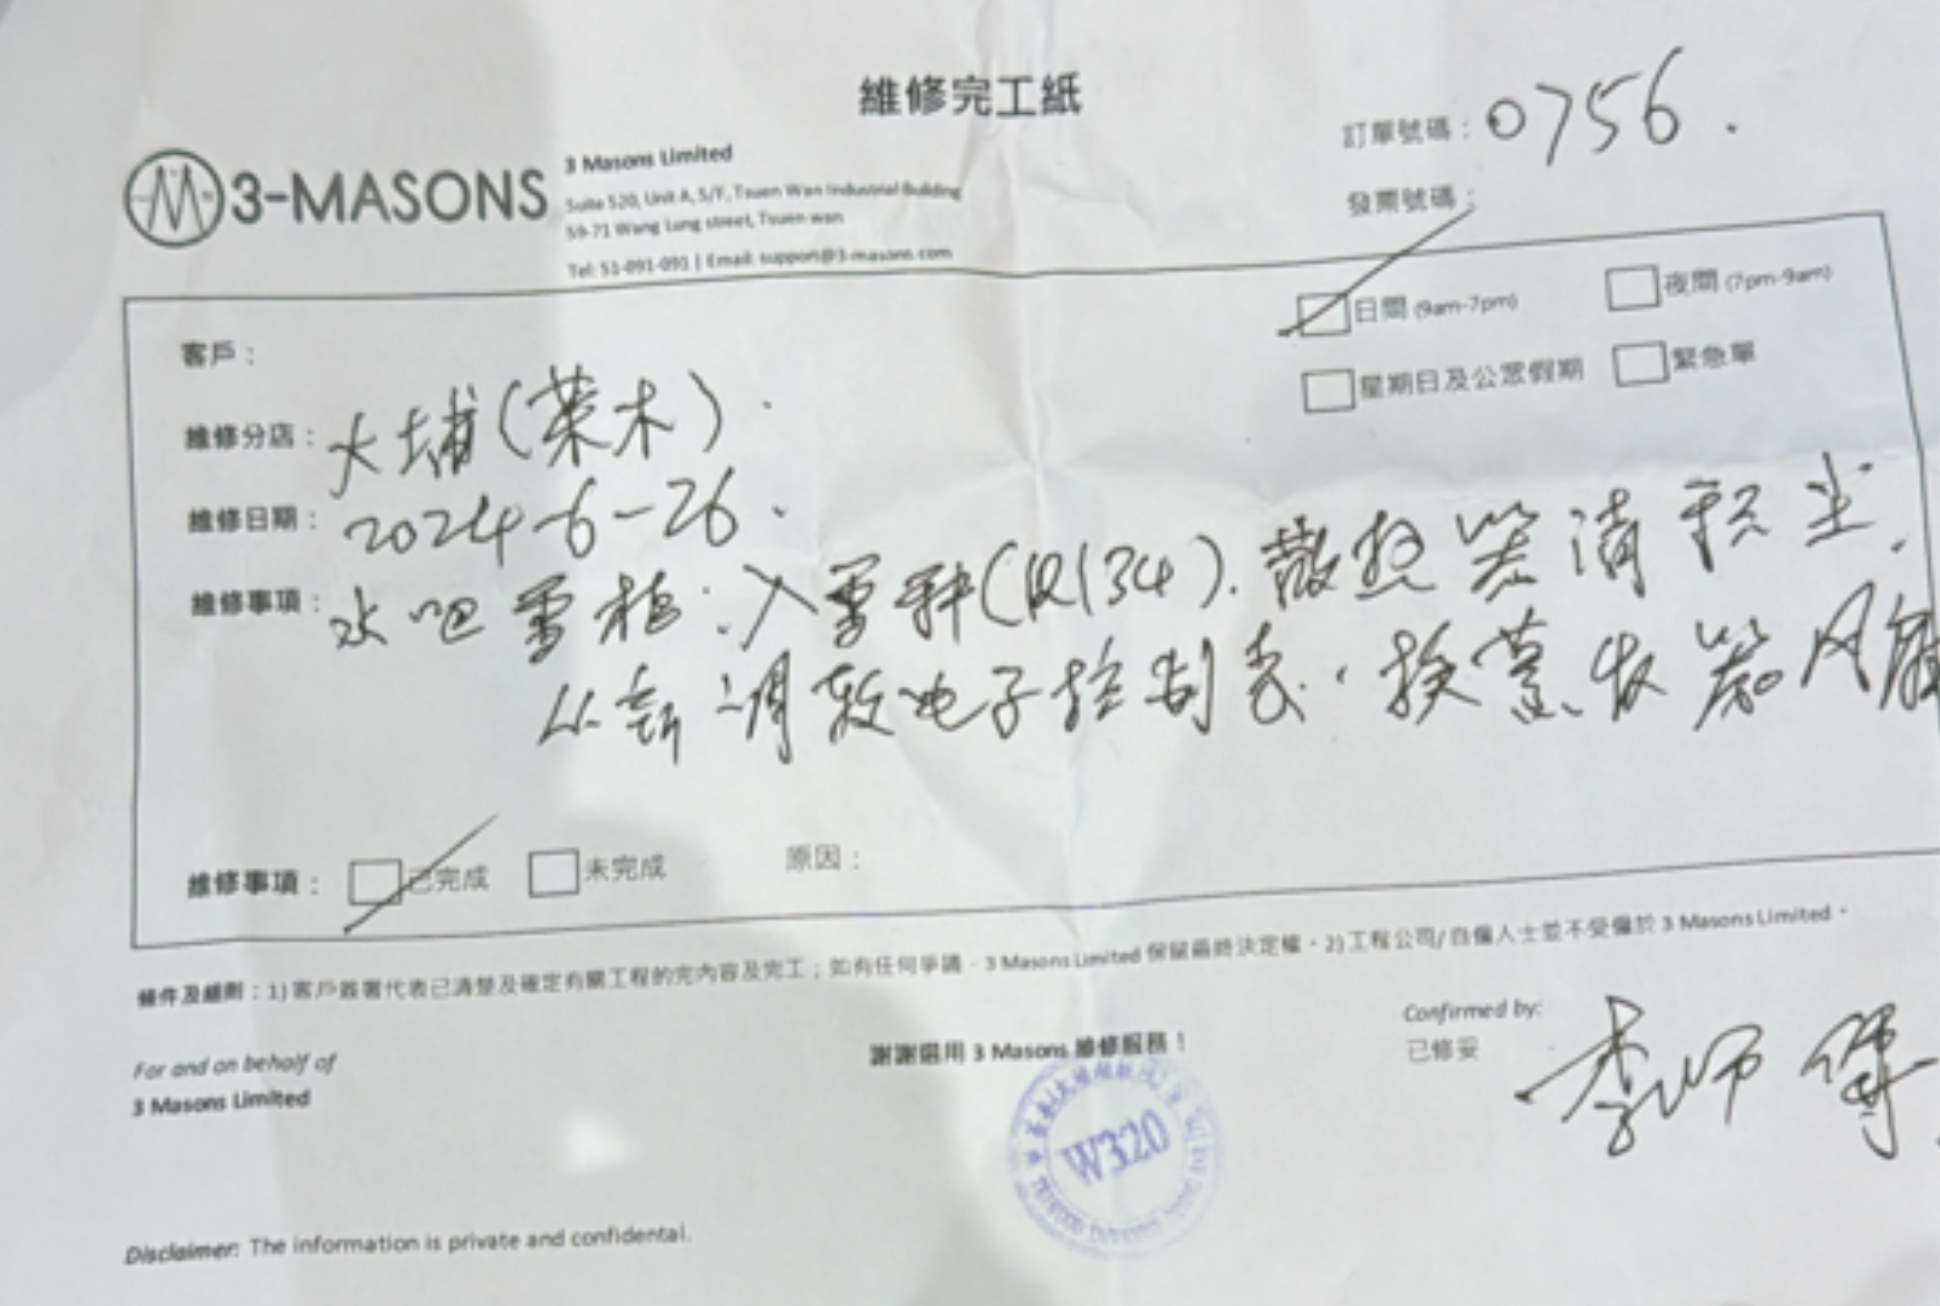 維修完工紙
3-MASONS
3 Masons Limited
Suite 520, Unit A, 5/F, Tsuen Wan Industrial Building
59-71 Wang Lung street, Tsuen wan
Tel: 51-091-091 | Email: support@3-masons.com
訂單號碼：0756.
發票號碼：
日間 (9am-7pm)
夜間 (7pm-9am)
星期日及公眾假期
緊急單
客戶：
維修分店：大埔(茶木).
維修日期：2024-6-26.
維修事項：水吧雪柜:入雪种(R134).散热器清积尘.
从新调较电子控制表.换蒸发器风扇
維修事項：
已完成
未完成
原因：
條件及細則：1) 客戶簽署代表已清楚及確定有關工程的完內容及完工；如有任何爭議，3 Masons Limited 保留最終決定權。2) 工程公司/自僱人士並不受僱於 3 Masons Limited。
For and on behalf of
3 Masons Limited
謝謝選用 3 Masons 維修服務！
Confirmed by:
已修妥
李师傅
W320
Disclaimer: The information is private and confidental.